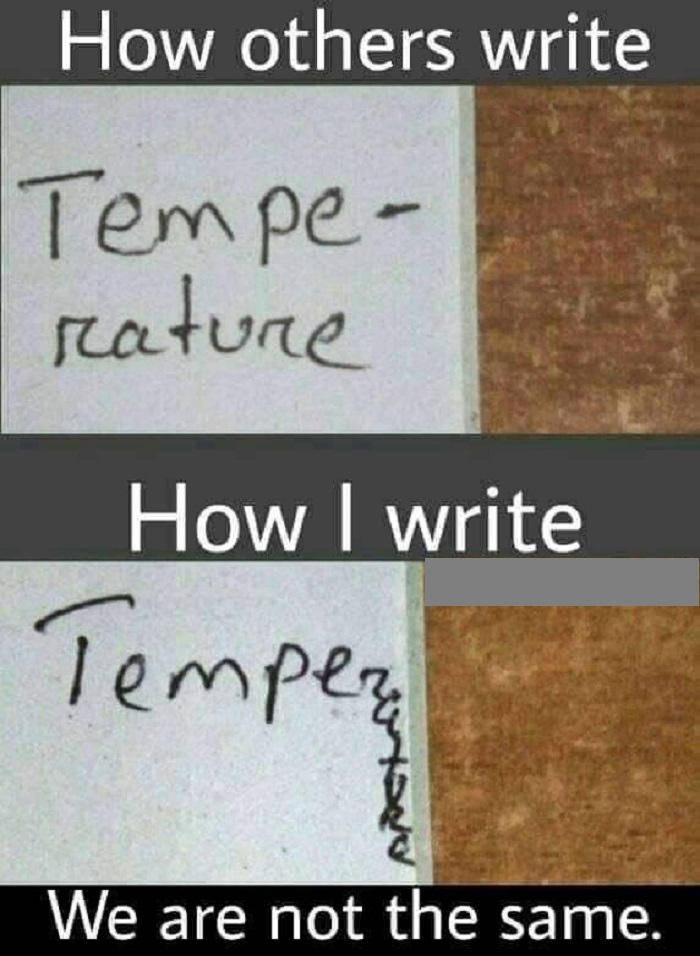 How others write
Tempe-
rature
How I write
Temperature
We are not the same.